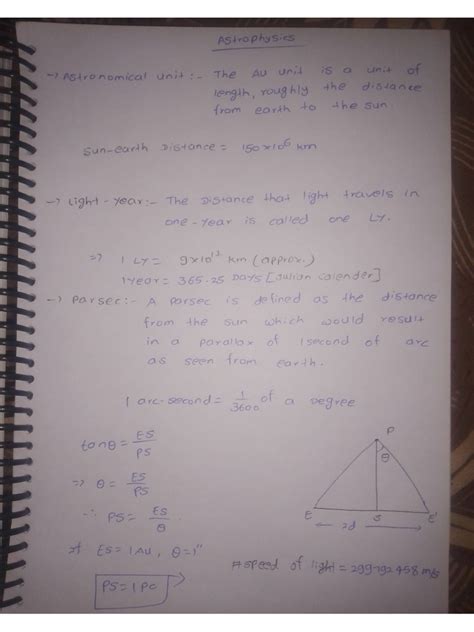 Astrophysics
→ Astronomical unit :- The AU unit is a unit of
length, roughly the distance
from earth to the sun.
Sun-earth Distance = 150×10⁶ km
→ Light-year :- The Distance that light travels in
one-year is called one LY.
⇒ 1 LY = 9×10¹² km (approx.)
1 year = 365.25 Days [Julian calender]
→ Parsec :- A parsec is defined as the distance
from the sun which would result
in a parallax of 1 second of arc
as seen from earth.
1 arc-second = 1/3600 of a Degree
tanθ = ES/PS
⇒ θ = ES/PS
∴ PS = ES/θ
If ES = 1 AU, θ = 1"
PS = 1 PC
P
θ
E S E'
2d
# speed of light = 299 792 458 m/s